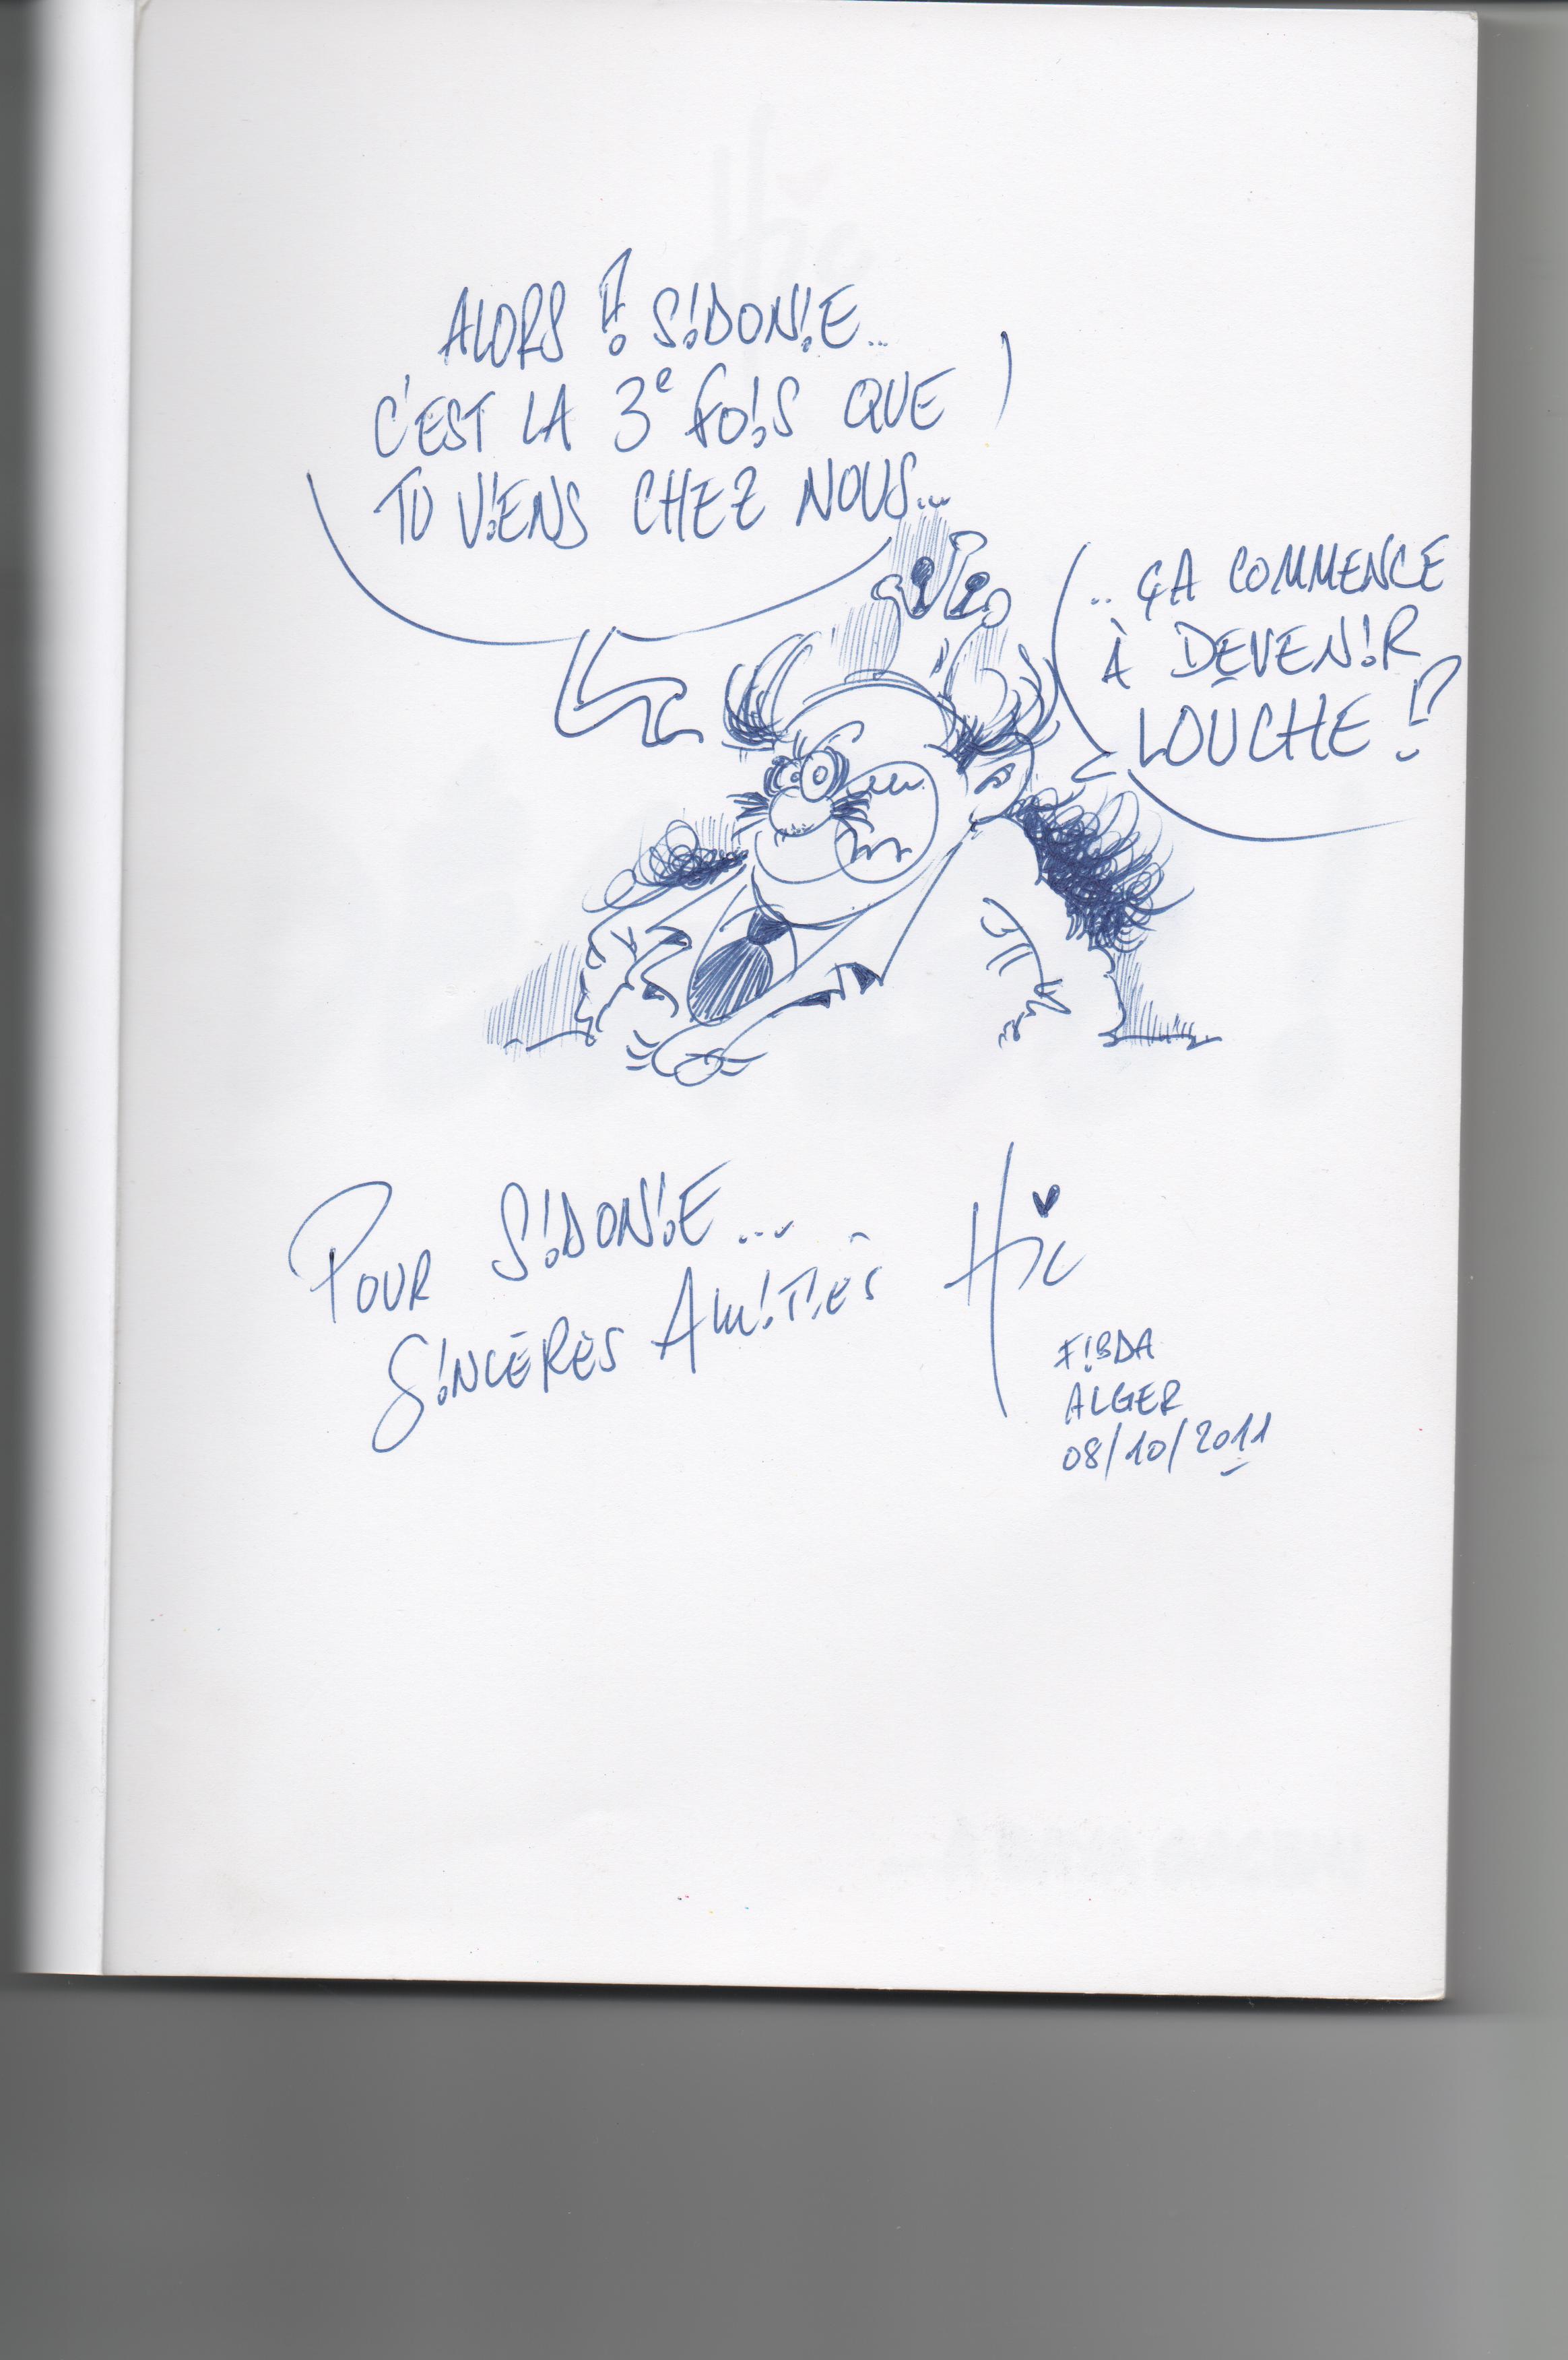 ALORS !? SIDONIE..
C'EST LA 3e FOIS QUE
TU VIENS CHEZ NOUS...
.. ÇA COMMENCE
À DEVENIR
LOUCHE !?
POUR SIDONIE...
SINCÈRES AMITIÉS
Hic
FIBDA
ALGER
08/10/2011